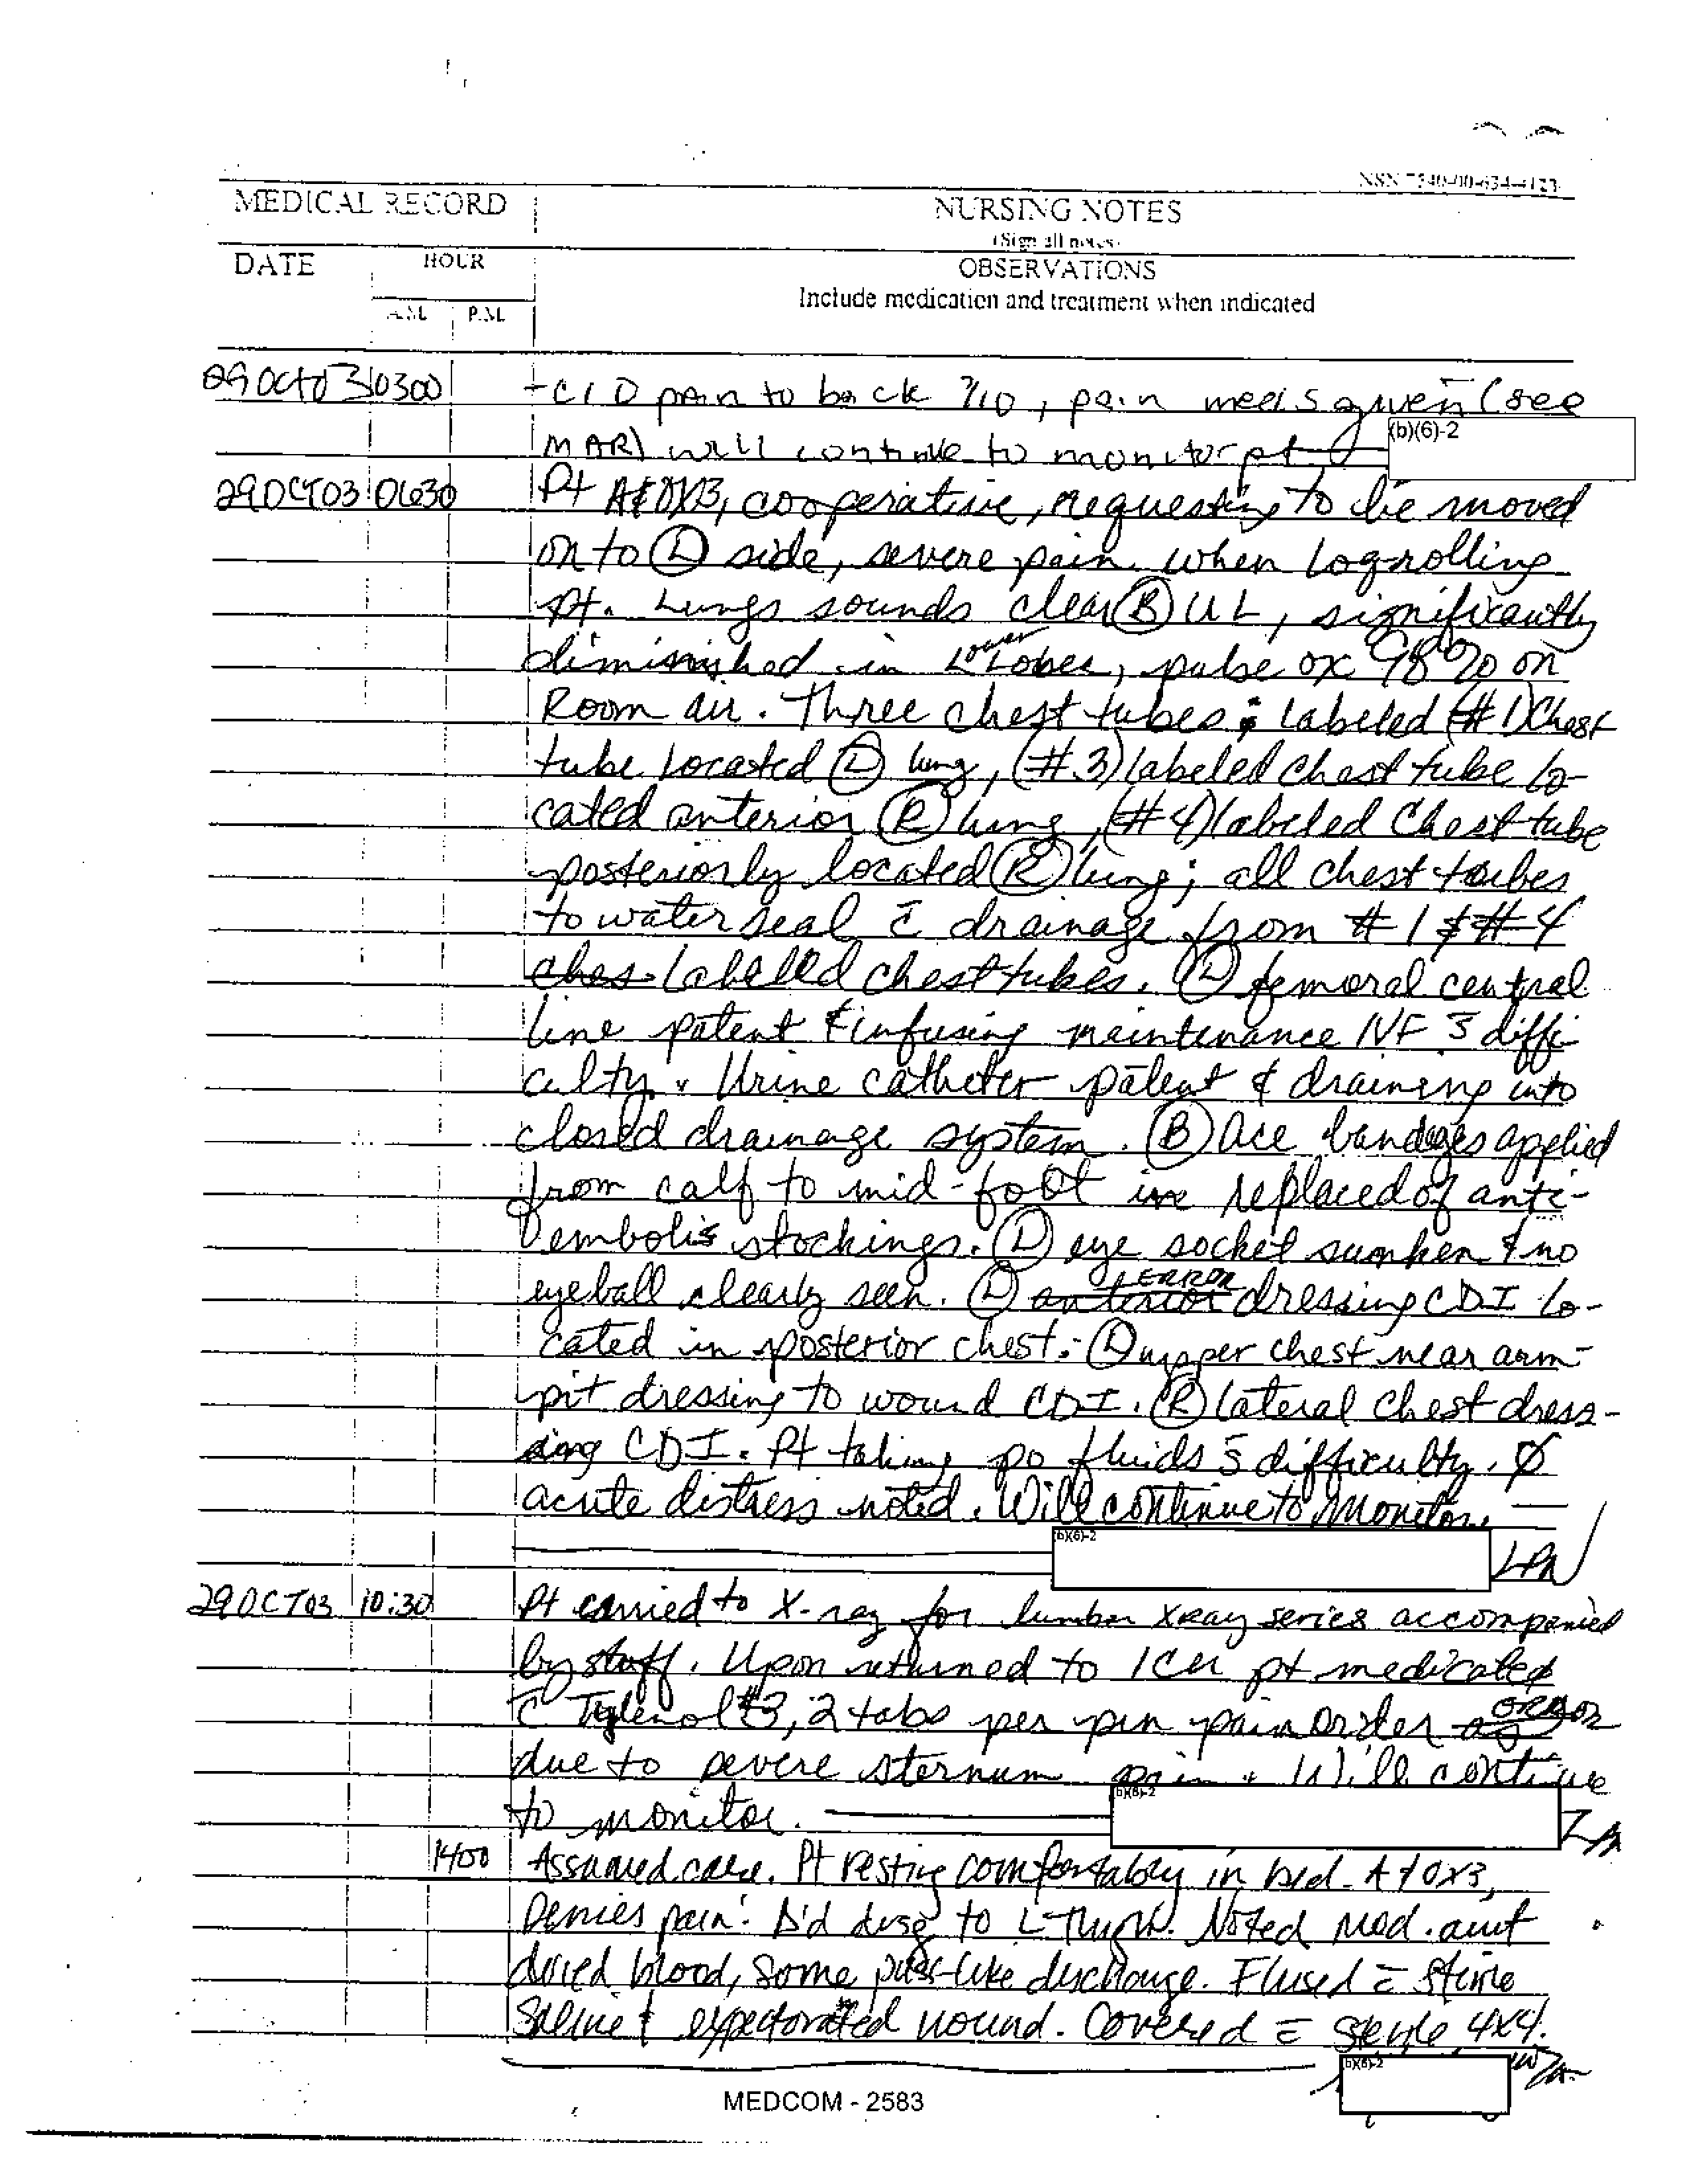 NSN 7540-00-634-4123
MEDICAL RECORD
NURSING NOTES
(Sign all notes)
DATE
HOUR
OBSERVATIONS
Include medication and treatment when indicated
A.M. P.M.
29 Oct 03 0300 - C/O pain to back 7/10, pain meds given (see
MAR) will continue to monitor pt
(b)(6)-2
29 OCT 03 0630 Pt A&OX3, cooperative, requesting to be moved
onto Ⓛ side, severe pain when Logrolling
pt. Lungs sounds clear Ⓑ UL, significantly
diminished in Lower Lobes, pulse ox 98% on
Room air. Three chest tubes; labeled (#1) Chest
tube located Ⓛ lung, (#3) labeled chest tube lo-
cated anterior Ⓡ lung, (#4) labeled Chest tube
posteriorly located Ⓡ lung; all chest tubes
to water seal c̄ drainage from #1 & #4
ches labelled chest tubes. Ⓛ femoral central
line patent & infusing maintenance IVF s̄ diffi
culty. Urine catheter patent & draining into
closed drainage system. Ⓑ Ace bandages applied
from calf to mid-foot in replaced of anti-
embolis stockings. Ⓛ eye socket sunken & no
eyeball clearly seen. Ⓛ anterior ERROR dressing CDI lo-
cated in posterior chest. Ⓛ upper chest near arm-
pit dressing to wound CDI. Ⓡ lateral chest dress-
ing CDI. Pt taking po fluids s̄ difficulty. Ø
acute distress noted. Will continue to monitor.
(b)(6)-2 LPN
29 OCT 03 10:30 Pt carried to X-ray for lumbar xray series accompanied
by staff. Upon returned to ICU pt medicated
c̄ Tylenol #3, 2 tabs per prn pain order as ERROR
due to severe sternum pain. Will continue
to monitor.
(b)(6)-2
1400 Assumed care. Pt resting comfortably in bed. A&OX3,
Denies pain. D'd dsg to L-Thigh. Noted mod. amt
dried blood, some puss-like discharge. Flused c̄ sterile
Saline & expectorated wound. Covered c̄ sterile 4x4.
(b)(6)-2
MEDCOM - 2583